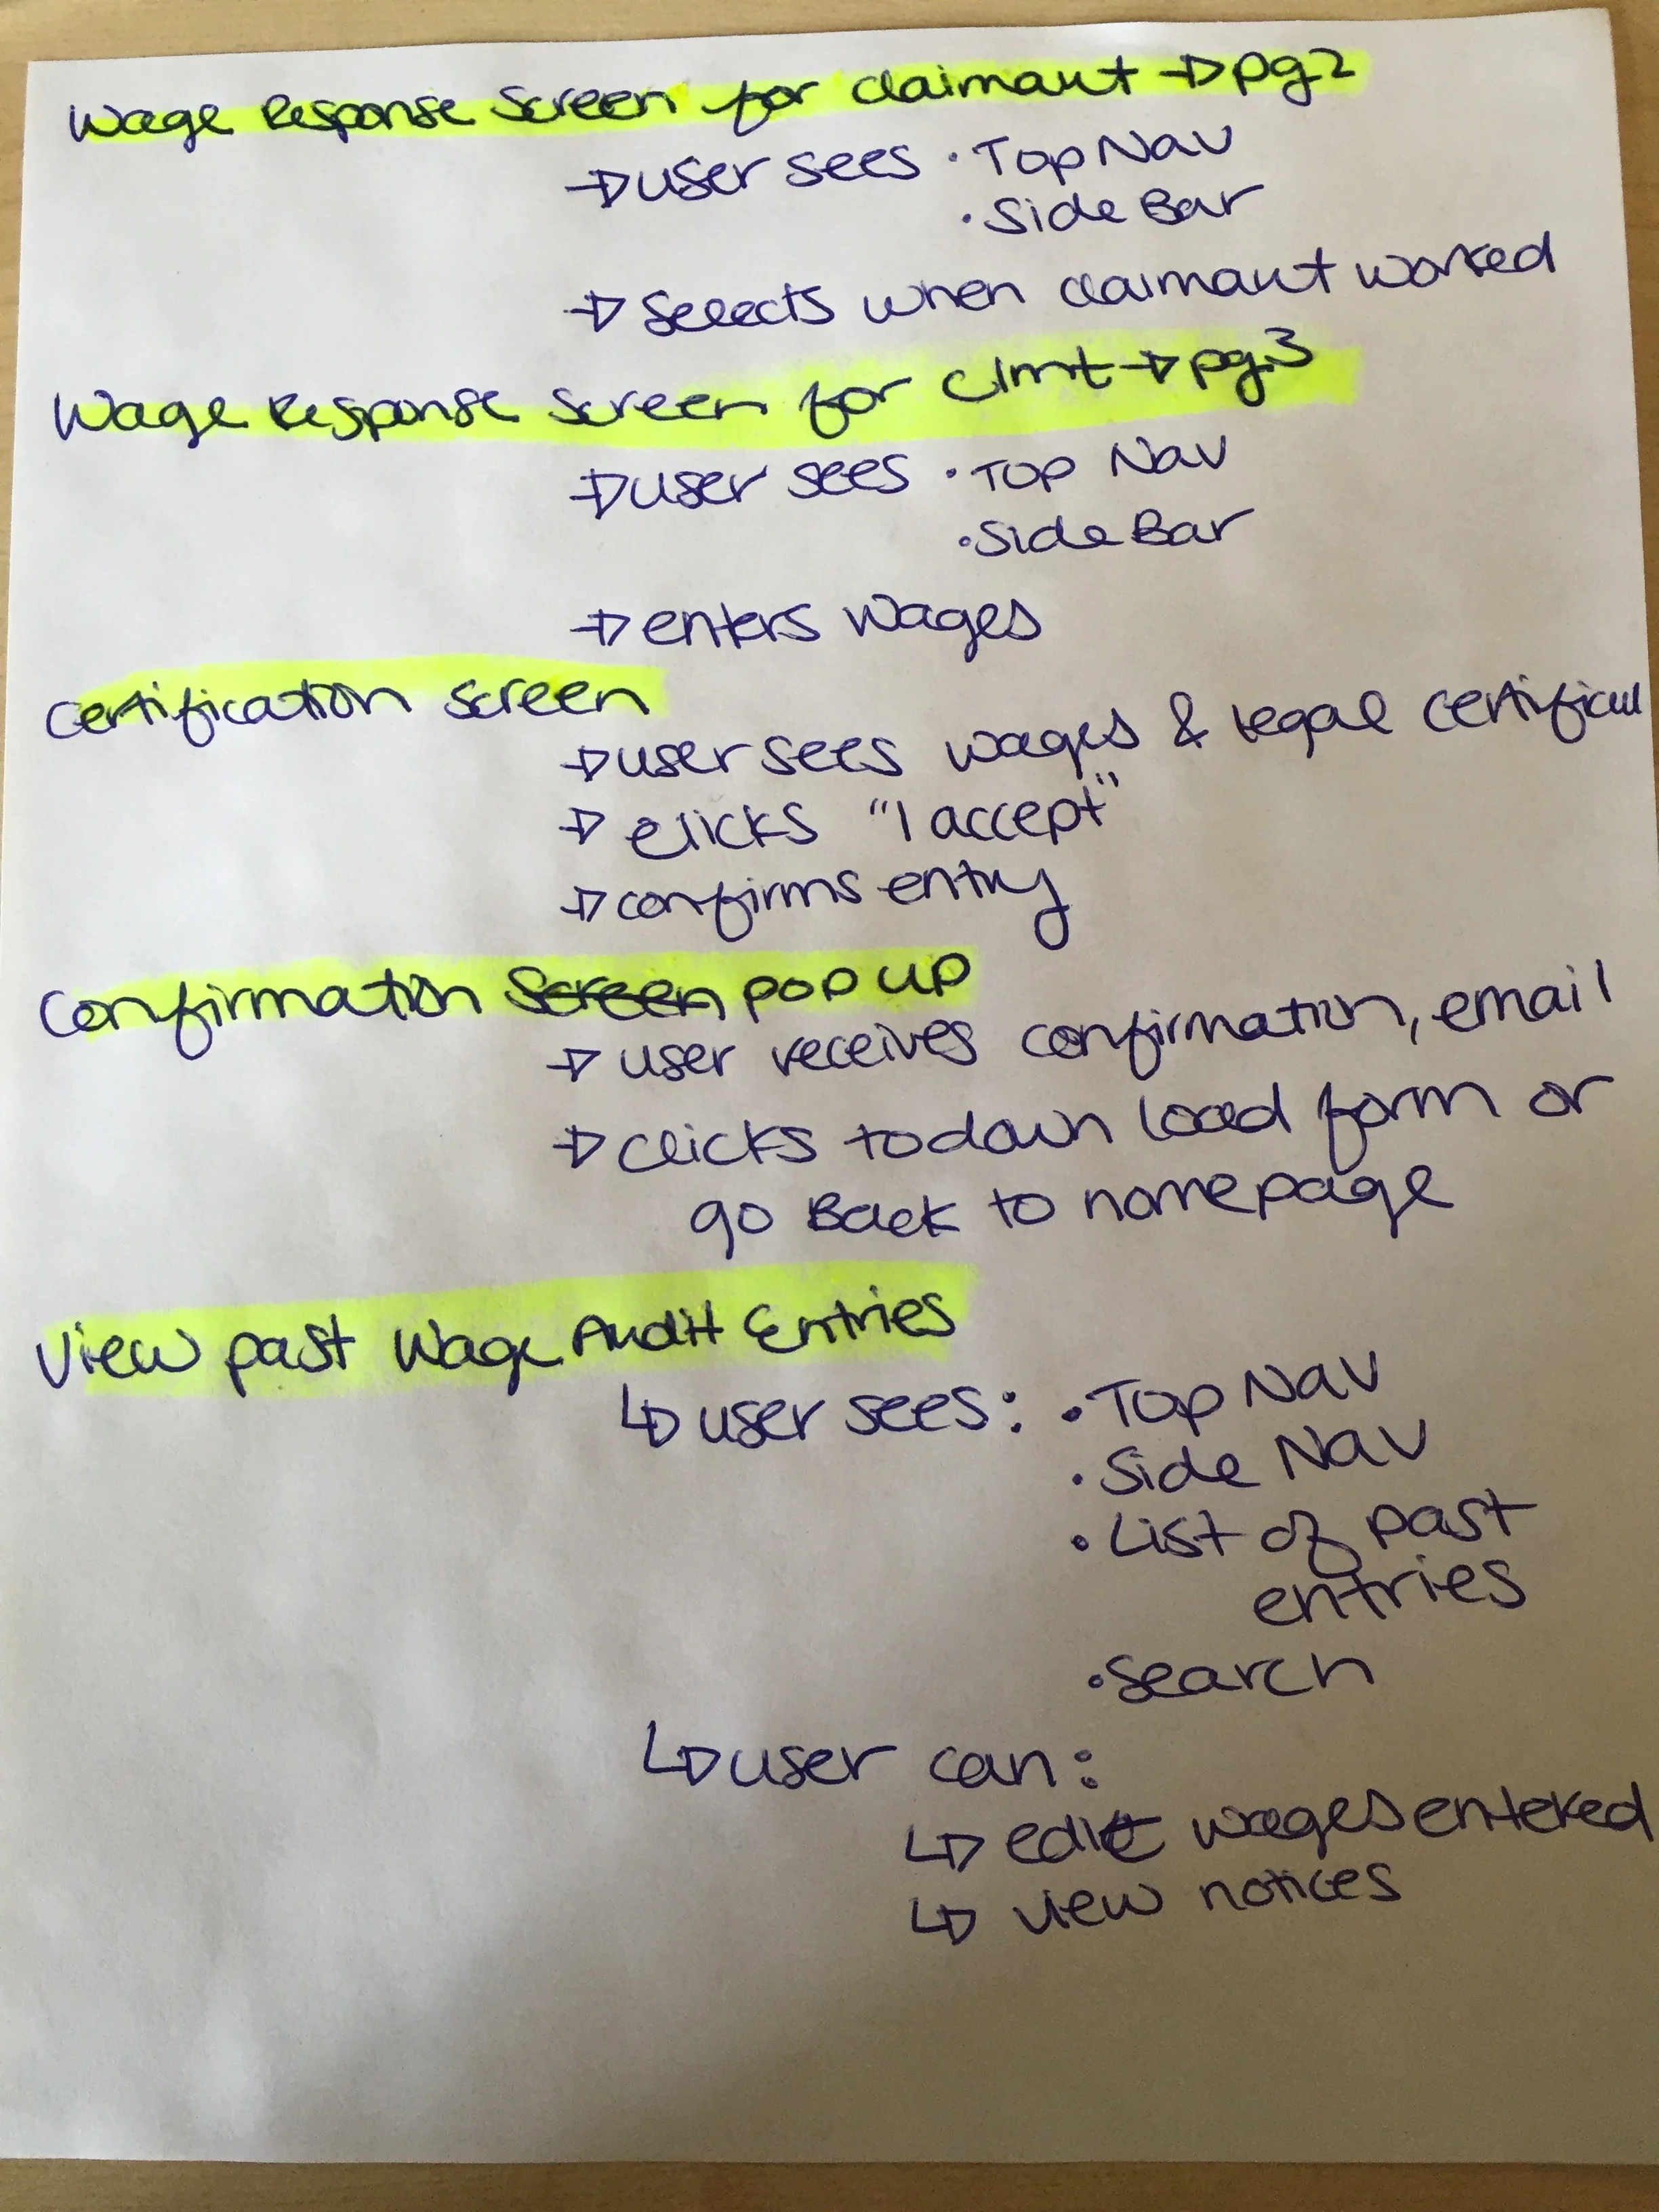 Wage Response Screen for claimant → pg2
→ user sees · Top Nav
· Side Bar
→ Selects when claimant worked
Wage Response Screen for clmt → pg.3
→ user sees · Top Nav
· Side Bar
→ enters wages
Certification Screen
→ user sees wages & legal
→ clicks "I accept"
→ confirms entry
Confirmation Screen pop up
→ user receives confirmation, email
→ clicks to down load form or
go Back to homepage
View past Wage Audit Entries
↳ user sees: · Top Nav
· Side Nav
· List of past
entries
· Search
↳ user can:
↳ edit wages entered
↳ view notices